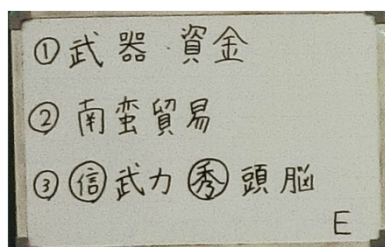 ① 武器 資金
② 南蛮貿易
③ ㊙信 武力 ㊙秀 頭脳
E